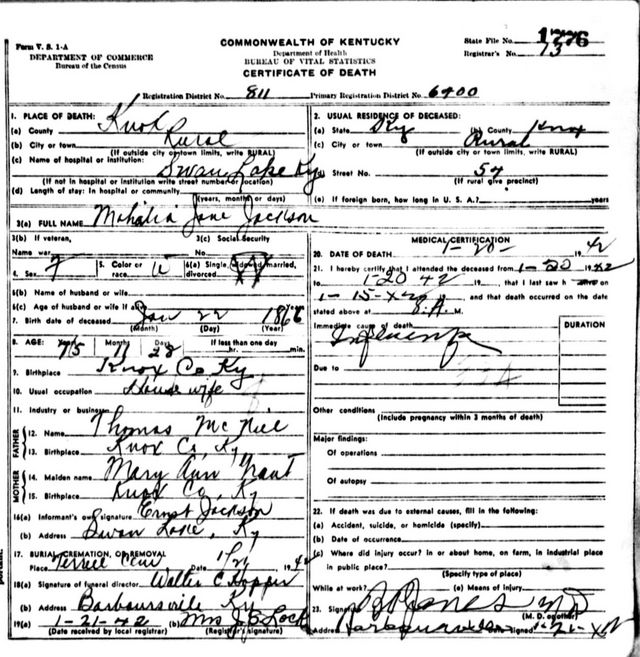 Form V. S. 1-A
DEPARTMENT OF COMMERCE
Bureau of the Census
COMMONWEALTH OF KENTUCKY
Department of Health
BUREAU OF VITAL STATISTICS
CERTIFICATE OF DEATH
State File No. 1776
Registrar's No. 13
Registration District No. 811 Primary Registration District No. 6400
1. PLACE OF DEATH:
(a) County Knox
(b) City or town Rural
(If outside city or town limits, write RURAL)
(c) Name of hospital or institution: Swan Lake Ky
(If not in hospital or institution write street number or location)
(d) Length of stay: In hospital or community
(years, months or days)
2. USUAL RESIDENCE OF DECEASED:
(a) State Ky (b) County Knox
(c) City or town Rural
(If outside city or town limits, write RURAL)
(d) Street No. 54
(If rural give precinct)
(e) If foreign born, how long in U. S. A.? years
3(a) FULL NAME Mahalia Jane Jackson
3(b) If veteran, 3(c) Social Security
Name war No.
4. Sex F 5. Color or race W 6(a) Single, widowed, married, divorced
6(b) Name of husband or wife
6(c) Age of husband or wife if alive years
7. Birth date of deceased Jan 22 1866
(Month) (Day) (Year)
8. AGE: Years 75 Months 11 Days 28 If less than one day
hr. min.
9. Birthplace Knox Co Ky.
10. Usual occupation House wife
11. Industry or business
FATHER
12. Name Thomas McNiel
13. Birthplace Knox Co, Ky.
MOTHER
14. Maiden name Mary Ann
15. Birthplace Knox Co, Ky
16(a) Informant's own signature Ernst Jackson
(b) Address Swan Lake, Ky
17. BURIAL, CREMATION, OR REMOVAL
Place Terrell Cem Date 1/21 1942
18(a) Signature of funeral director Walter C Hopper
(b) Address Barboursvile Ky
19(a) 1-21-42 (b) Mrs J B Lock
(Date received by local registrar) (Registrar's signature)
MEDICAL CERTIFICATION
20. DATE OF DEATH 1-20- 1942
21. I hereby certify that I attended the deceased from 1-20 1942
to 1-20 42 19 , that I last saw h alive on
1-15-42 , and that death occurred on the date
stated above at 8.A. M.
Immediate cause of death
DURATION
Due to
Other conditions
(Include pregnancy within 3 months of death)
Major findings:
Of operations
Of autopsy
22. If death was due to external causes, fill in the following:
(a) Accident, suicide, or homicide (specify)
(b) Date of occurrence
(c) Where did injury occur? in or about home, on farm, in industrial place
in public place?
(Specify type of place)
While at work? (e) Means of injury
23. Signature Jones MD
(M. D. or other)
Address signed 1-21-42